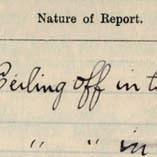 Nature of Report.
Ceiling off in t
" " in